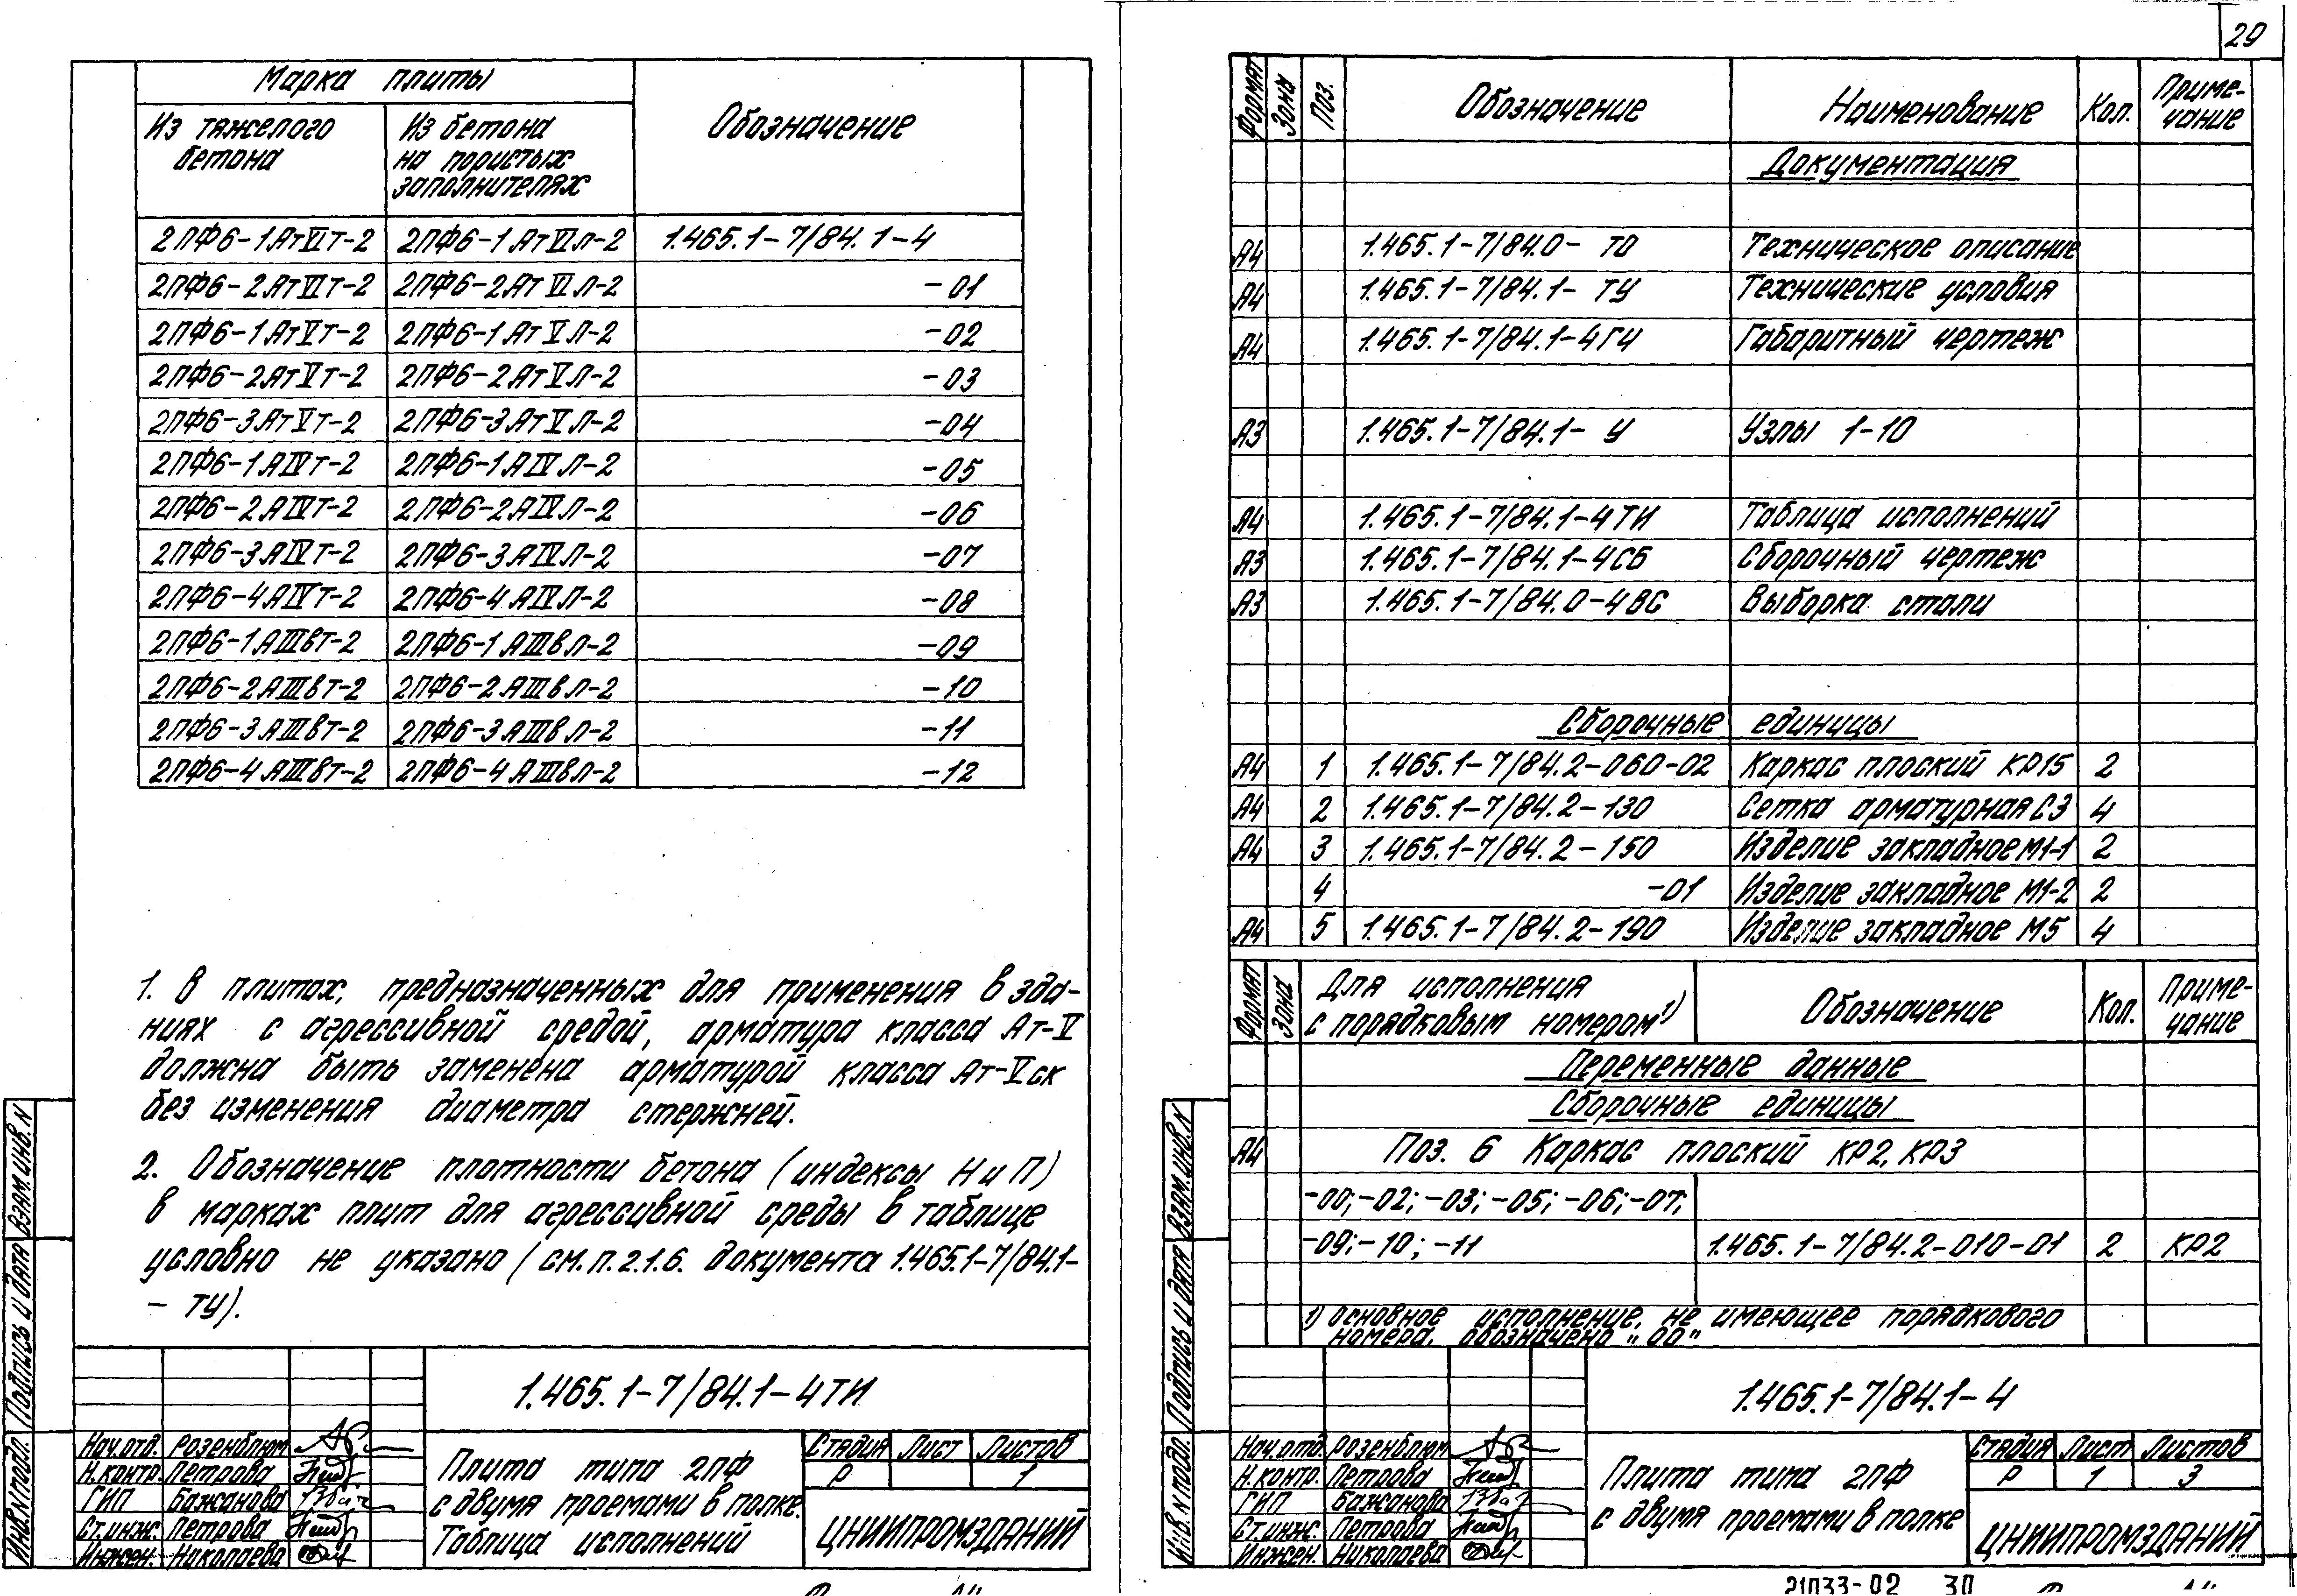 29
Марка плиты
Обозначение
Из тяжелого бетона
Из бетона на пористых заполнителях
2ПФ6-1АтVIт-2 2ПФ6-1АтVIл-2 1.465.1-7/84.1-4
2ПФ6-2АтVIт-2 2ПФ6-2АтVIл-2 -01
2ПФ6-1АтVт-2 2ПФ6-1АтVл-2 -02
2ПФ6-2АтVт-2 2ПФ6-2АтVл-2 -03
2ПФ6-3АтVт-2 2ПФ6-3АтVл-2 -04
2ПФ6-1АIVт-2 2ПФ6-1АIVл-2 -05
2ПФ6-2АIVт-2 2ПФ6-2АIVл-2 -06
2ПФ6-3АIVт-2 2ПФ6-3АIVл-2 -07
2ПФ6-4АIVт-2 2ПФ6-4АIVл-2 -08
2ПФ6-1АIIIвт-2 2ПФ6-1АIIIвл-2 -09
2ПФ6-2АIIIвт-2 2ПФ6-2АIIIвл-2 -10
2ПФ6-3АIIIвт-2 2ПФ6-3АIIIвл-2 -11
2ПФ6-4АIIIвт-2 2ПФ6-4АIIIвл-2 -12
1. В плитах, предназначенных для применения в зда-
ниях с агрессивной средой, арматура класса Ат-V
должна быть заменена арматурой класса Ат-Vск
без изменения диаметра стержней.
2. Обозначение плотности бетона (индексы Н и П)
в марках плит для агрессивной среды в таблице
условно не указано (см. п. 2.1.6. документа 1.465.1-7/84.1-
- ТУ).
Инв.N подл. Подпись и дата Взам.инв.N
1.465.1-7/84.1-4ТИ
Нач.отд. Розенблюм
Н.контр. Петрова
ГИП Бажанова
Ст.инж. Петрова
Инжен. Николаева
Плита типа 2ПФ
с двумя проемами в полке.
Таблица исполнений
Стадия Лист Листов
Р 1
ЦНИИПРОМЗДАНИЙ
Формат Зона Поз. Обозначение Наименование Кол. Приме-
чание
Документация
А4 1.465.1-7/84.0- ТО Техническое описание
А4 1.465.1-7/84.1- ТУ Технические условия
А4 1.465.1-7/84.1-4ГЧ Габаритный чертеж
А3 1.465.1-7/84.1- У Узлы 1-10
А4 1.465.1-7/84.1-4ТИ Таблица исполнений
А3 1.465.1-7/84.1-4СБ Сборочный чертеж
А3 1.465.1-7/84.0-4ВС Выборка стали
Сборочные единицы
А4 1 1.465.1-7/84.2-060-02 Каркас плоский КР15 2
А4 2 1.465.1-7/84.2-130 Сетка арматурная С3 4
А4 3 1.465.1-7/84.2-150 Изделие закладное М1-1 2
4 -01 Изделие закладное М1-2 2
А4 5 1.465.1-7/84.2-190 Изделие закладное М5 4
Формат Зона Для исполнения
с порядковым номером¹⁾ Обозначение Кол. Приме-
чание
Переменные данные
Сборочные единицы
А4 Поз. 6 Каркас плоский КР2, КР3
-00; -02; -03; -05; -06; -07;
-09; -10; -11 1.465.1-7/84.2-010-01 2 КР2
1) Основное исполнение, не имеющее порядкового
номера, обозначено "00"
Инв.N подл. Подпись и дата Взам.инв.N
1.465.1-7/84.1-4
Нач.отд. Розенблюм
Н.контр. Петрова
ГИП Бажанова
Ст.инж. Петрова
Инжен. Николаева
Плита типа 2ПФ
с двумя проемами в полке
Стадия Лист Листов
Р 1 3
ЦНИИПРОМЗДАНИЙ
21033-02 30